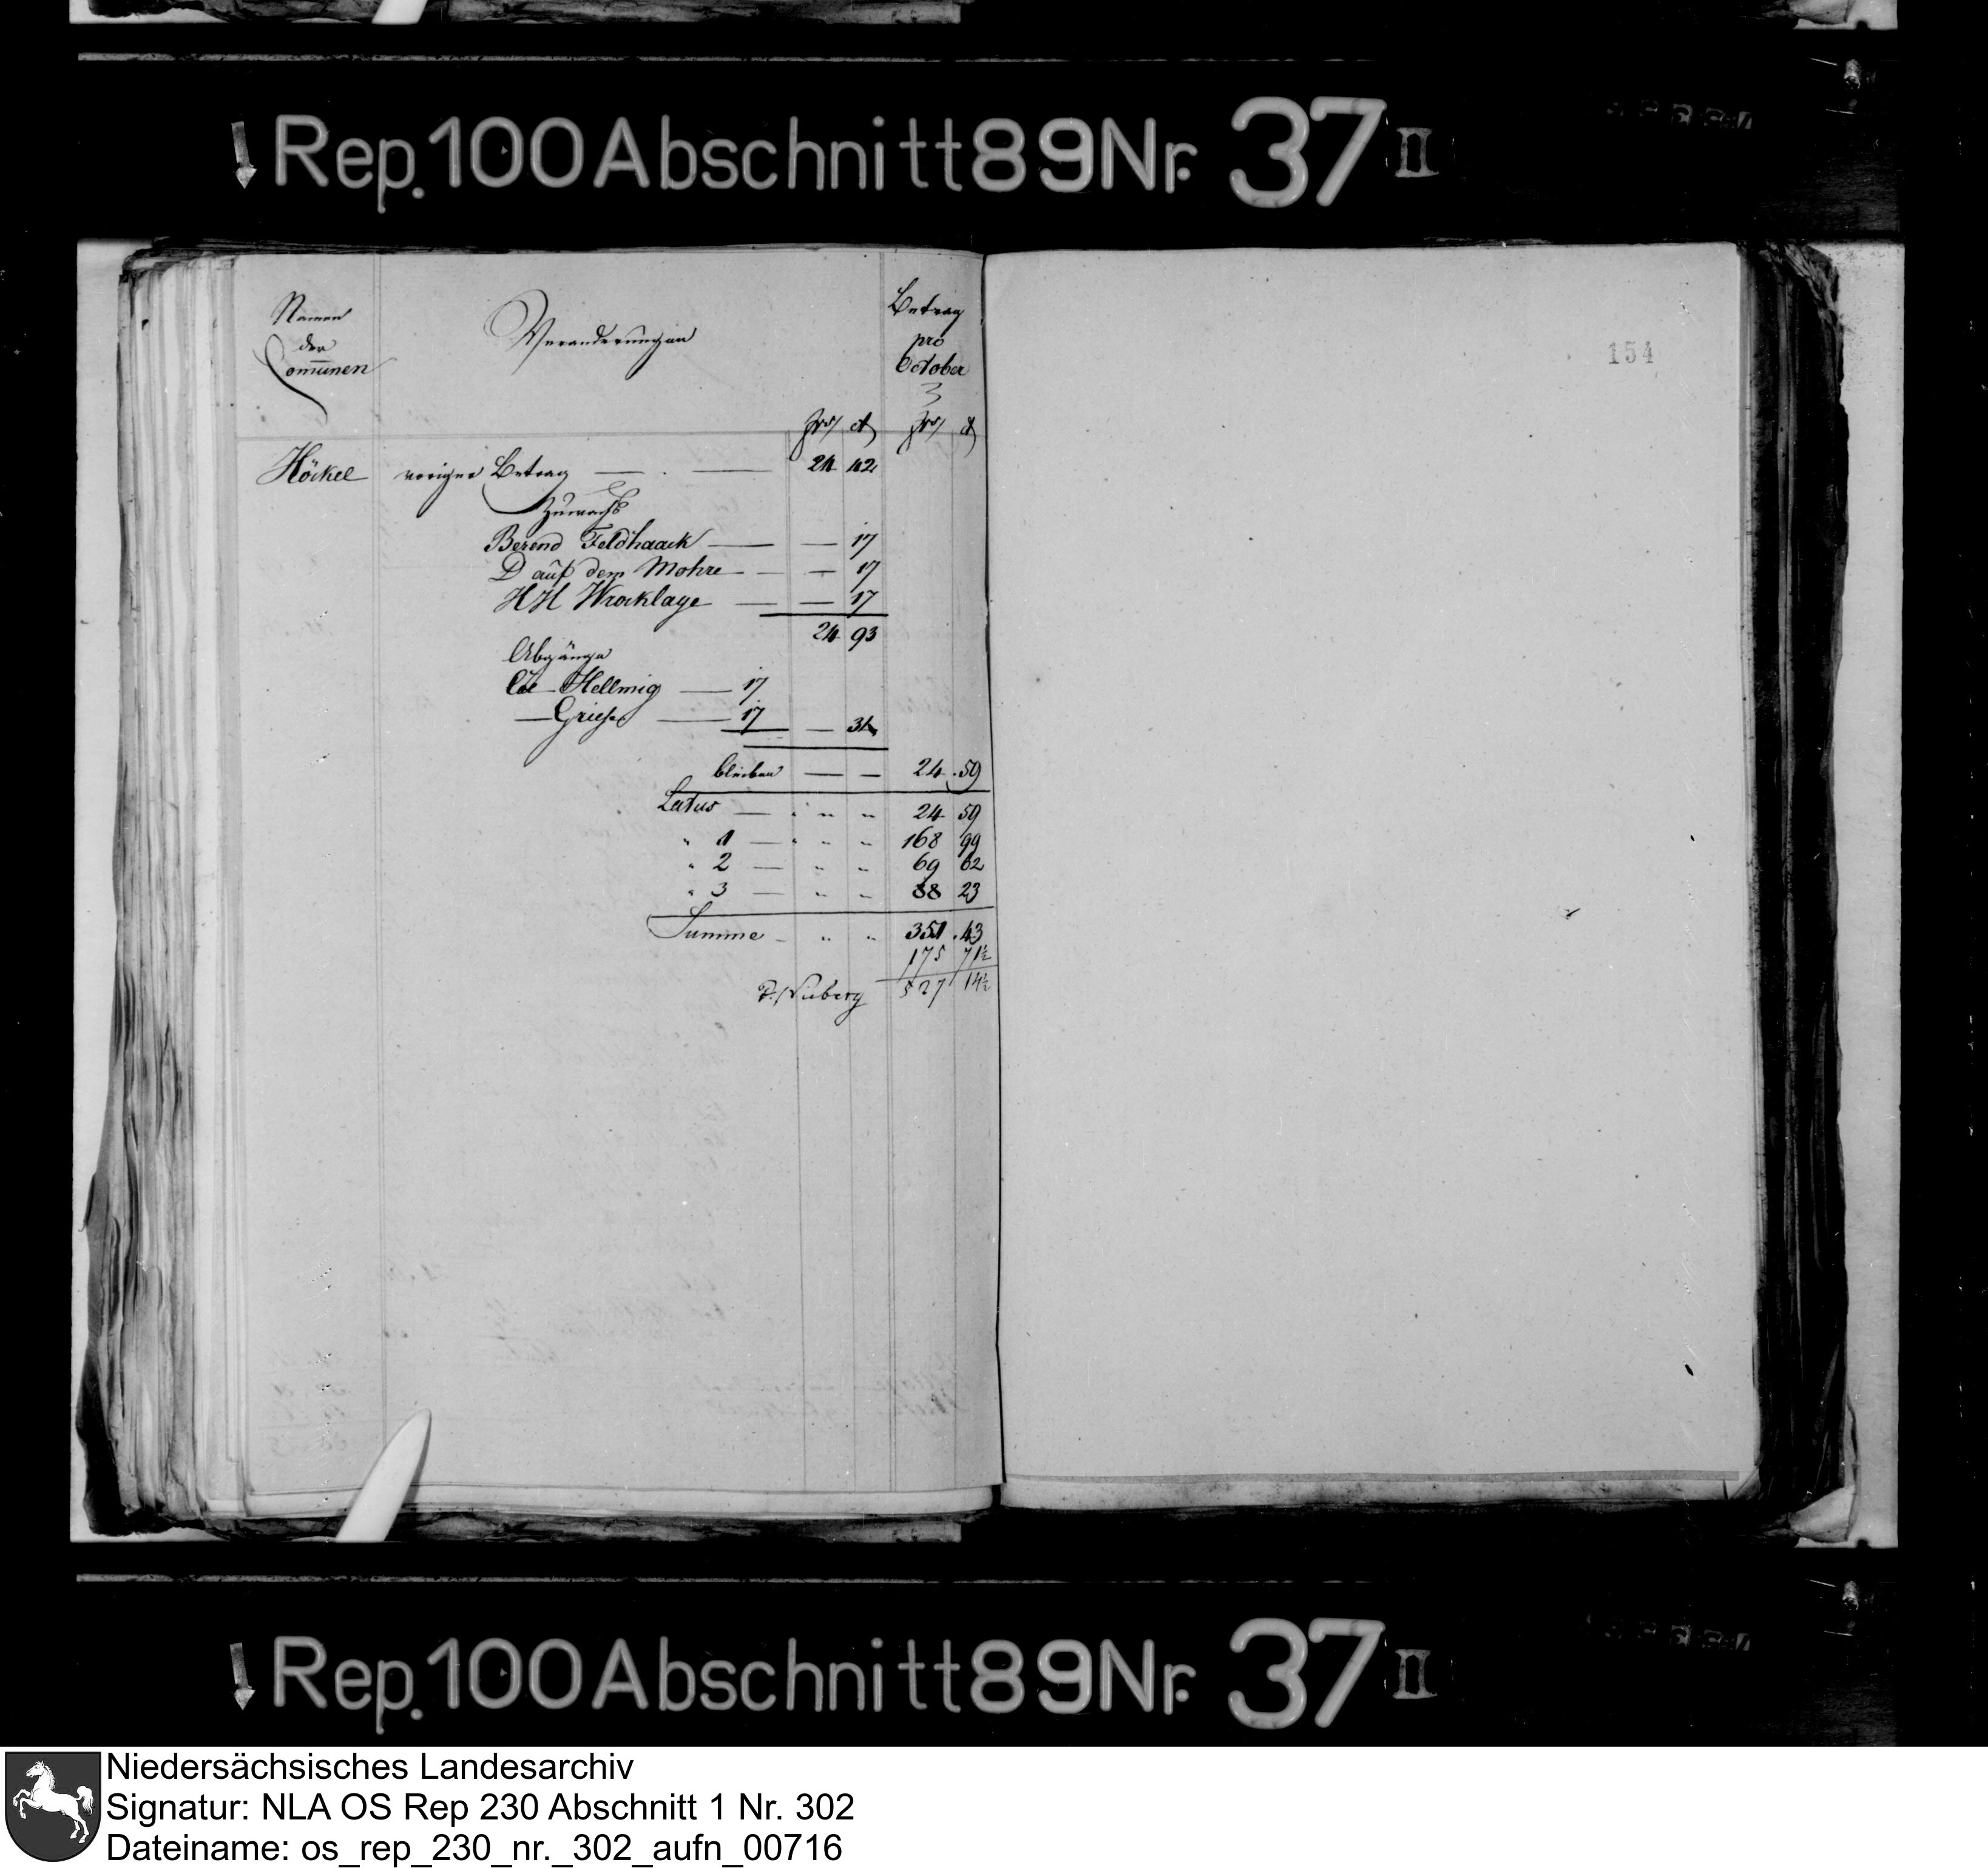 Rep. 100 Abschnitt 89 Nr. 37 II
Namen
der
Com̅unen
Veranderungen
Betrag
pro
October
frs ct frs ct
154
Höckel voriger Betrag — — 24 42
Zuwachs
Berend Feldhaack — — 17
D auf dem Mohre — — 17
HH Wrocklage — — 17
24 93
Abgänge
Hellmig — 17
— Griese — 17 — 34
bleiben — — 24 . 59
Latus — " " 24 59
" 1 — " " 168 99
" 2 — " " 69 62
" 3 — " " 88 23
Summe — " " 351 . 43
175 71½
527 14½
Rep. 100 Abschnitt 89 Nr. 37 II
Niedersächsisches Landesarchiv
Signatur: NLA OS Rep 230 Abschnitt 1 Nr. 302
Dateiname: os_rep_230_nr._302_aufn_00716